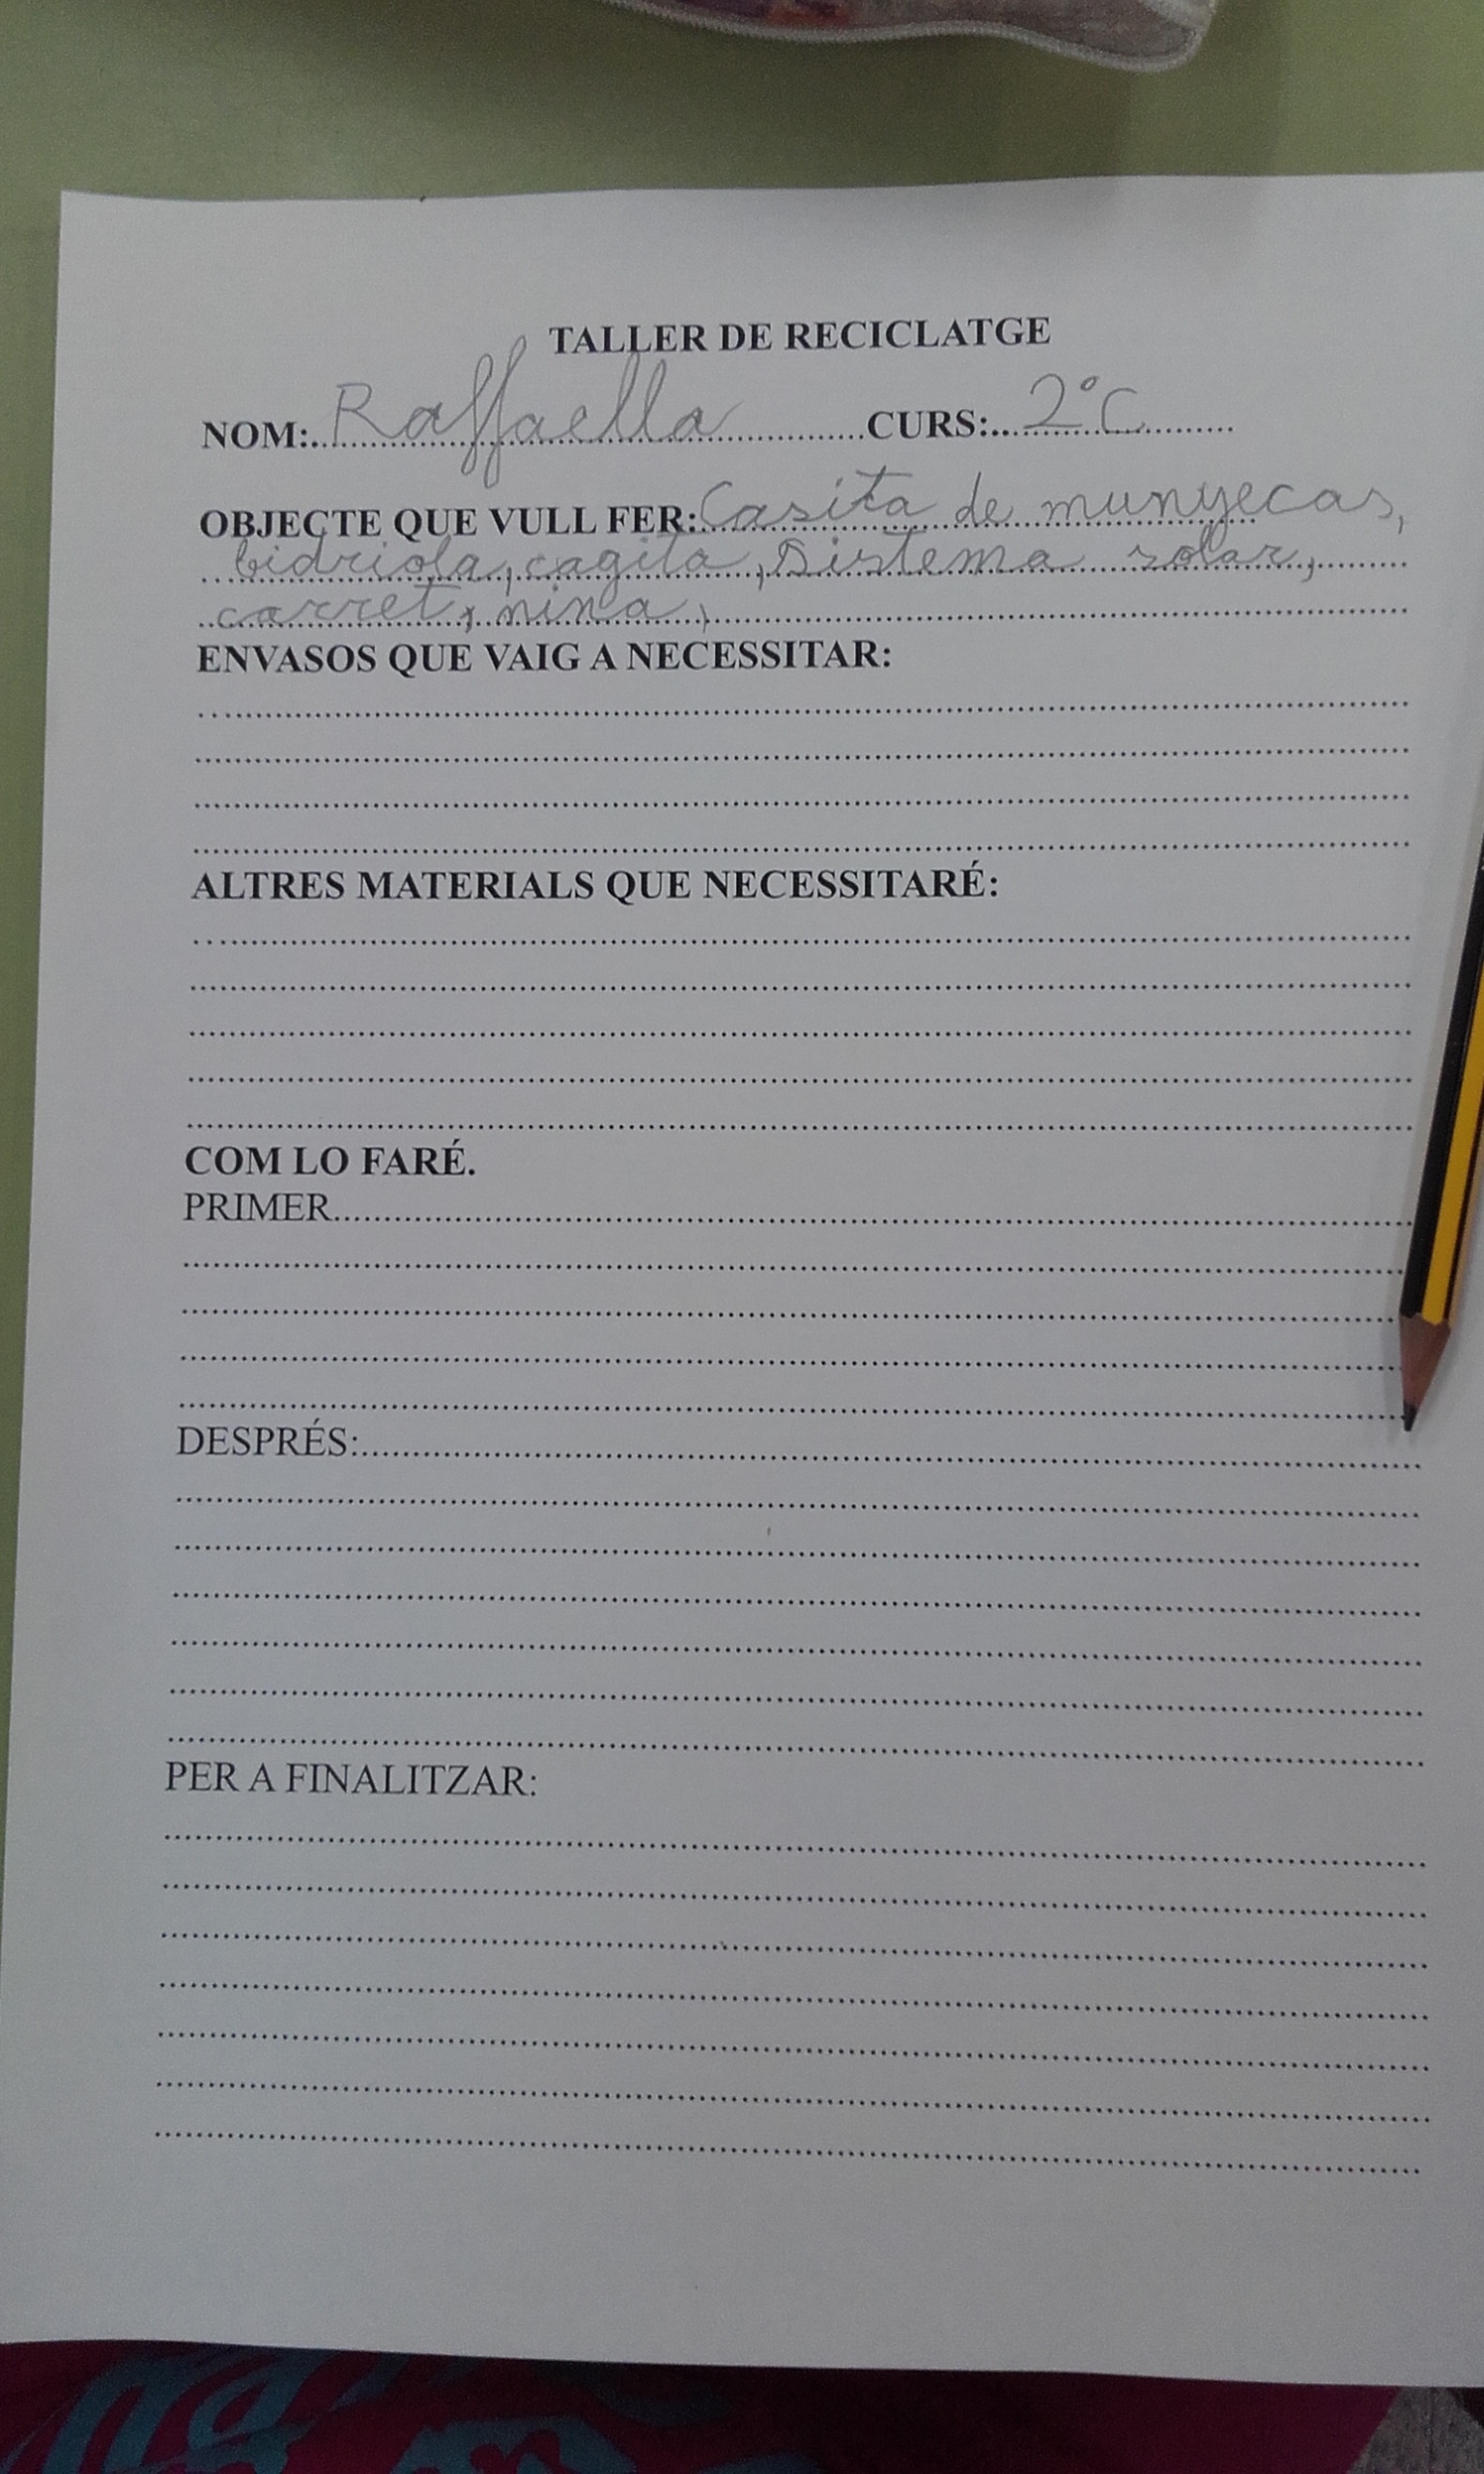 TALLER DE RECICLATGE
NOM:..Raffaella..............CURS:...2ºC..........
OBJECTE QUE VULL FER:Casita de munyecas,
bidriola, cagita, Sistema solar,
carret, nina,
ENVASOS QUE VAIG A NECESSITAR:
ALTRES MATERIALS QUE NECESSITARÉ:
COM LO FARÉ.
PRIMER
DESPRÉS:
PER A FINALITZAR: